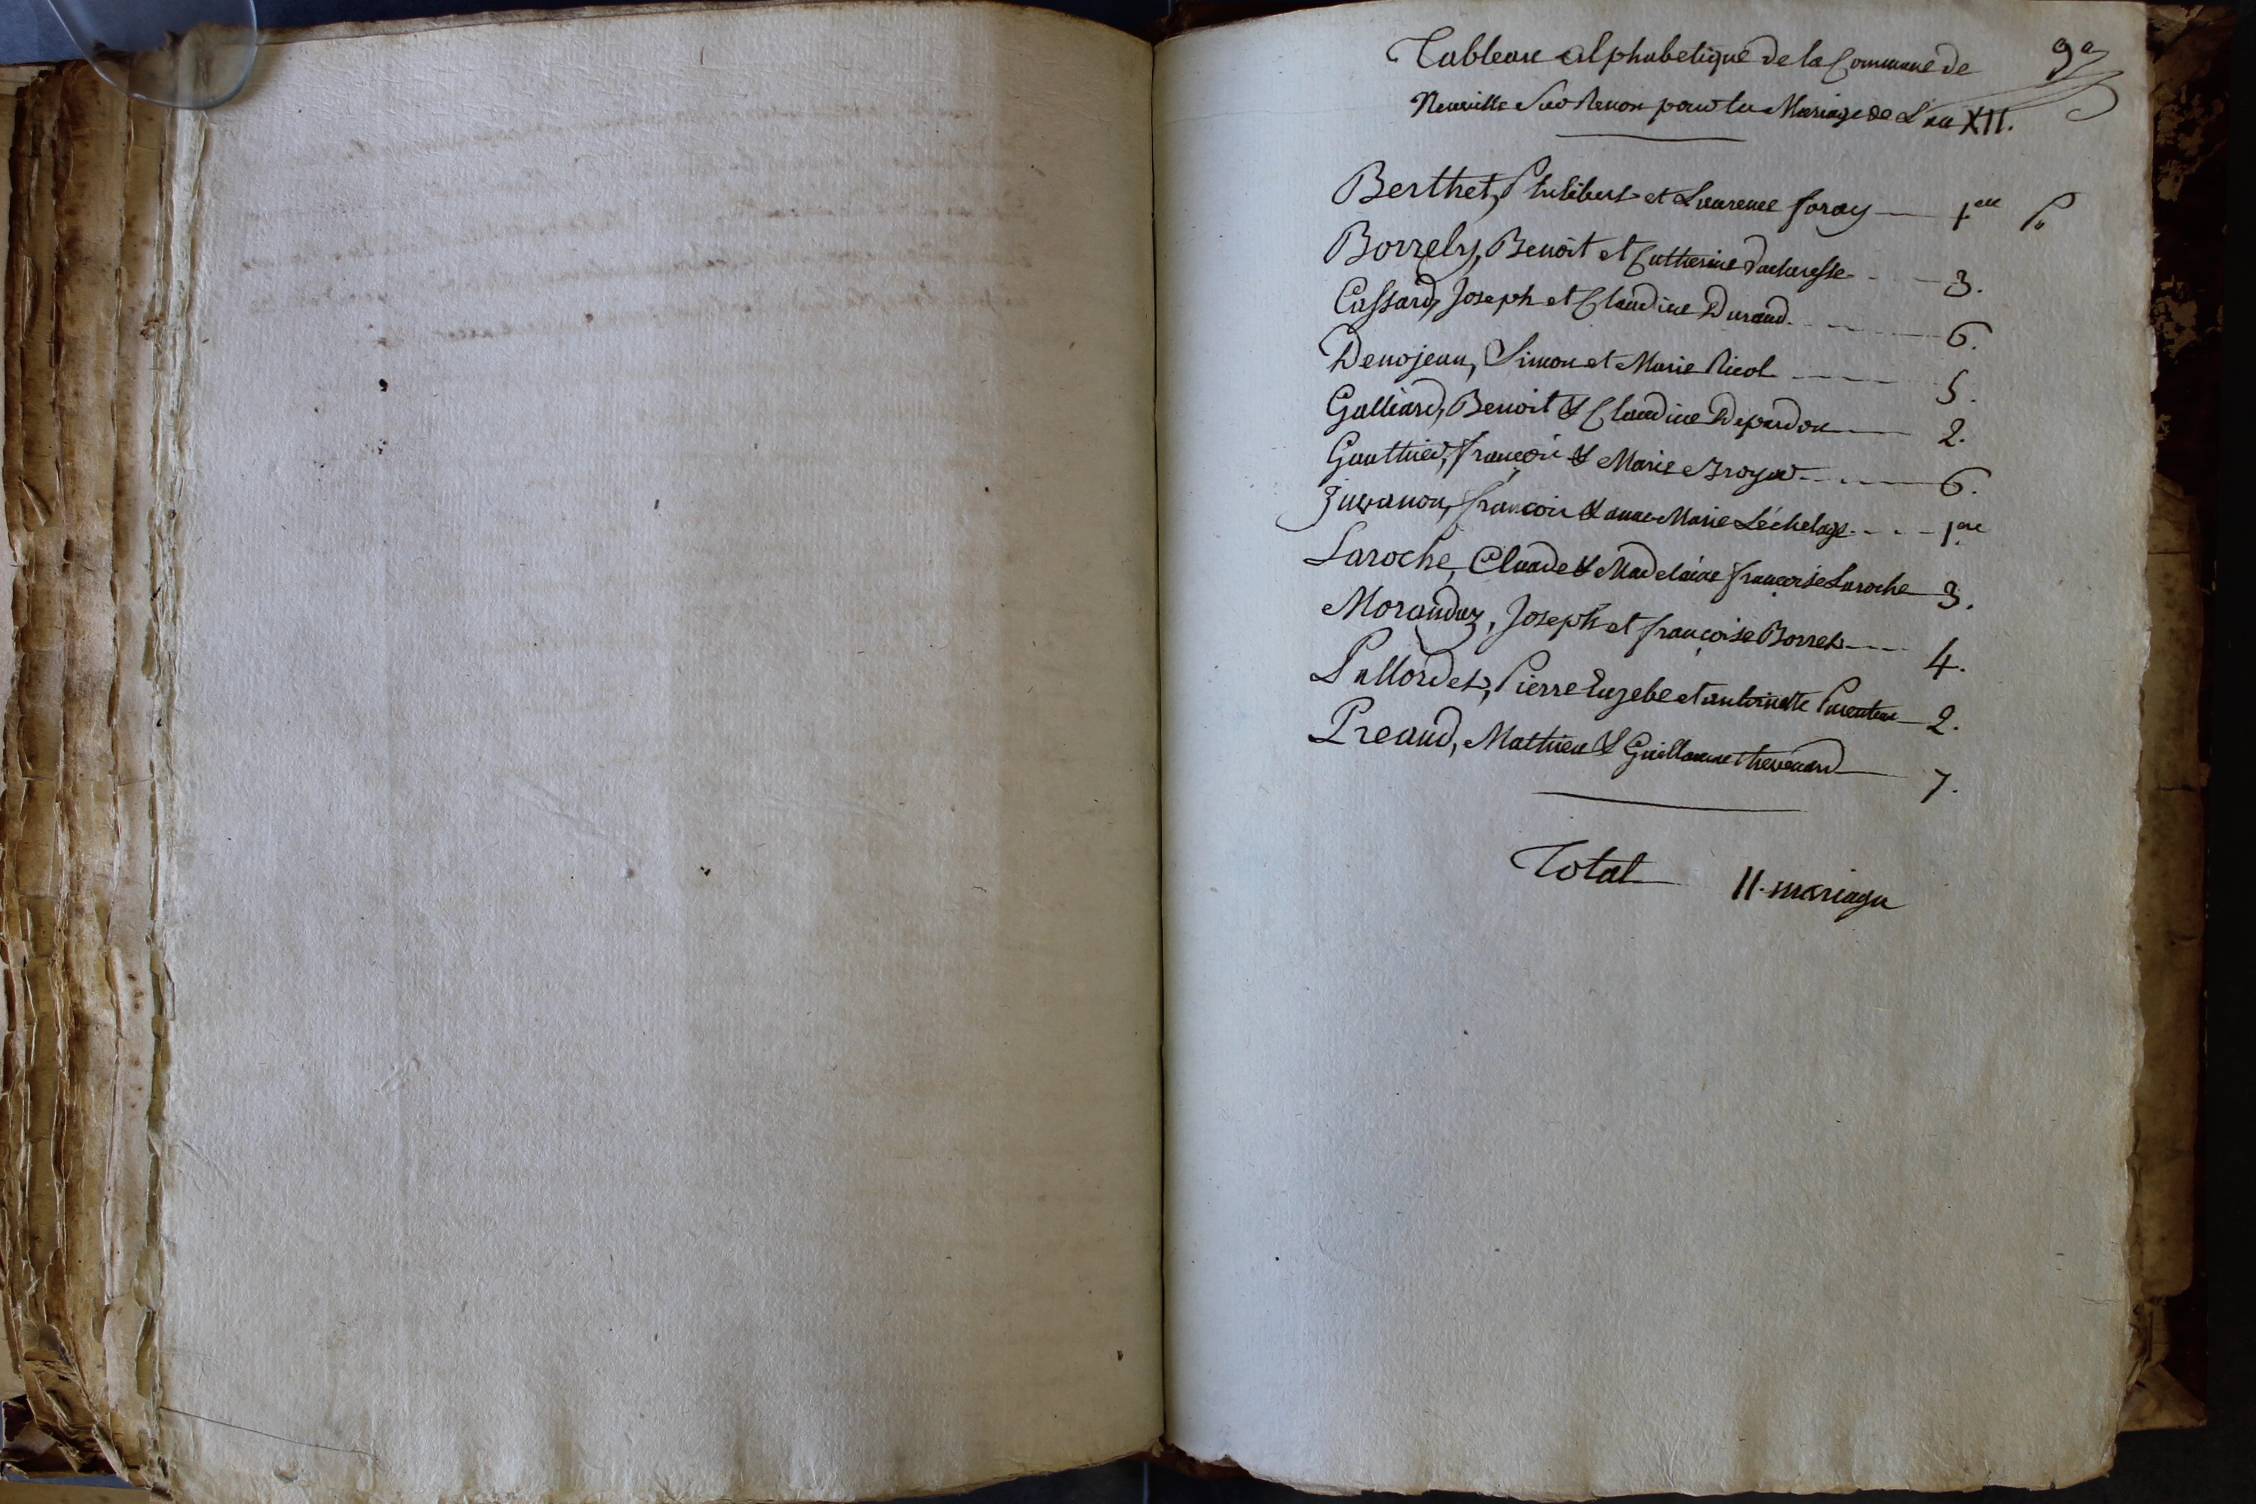 Tableau alphabetique de la Commune de
Neuville Sur Renon pour les Mariage de L'an XII.
Berthet, Philibert et Laurence foray — 1ere
Borrely, Benoit et Catherine — 3.
Cassard, Joseph et Claudine Durand — 6.
Denojean, Simon et Marie Nicol — 5.
Galliard, Benoit & Claudine Depardon — 2.
Gauthier, françois & Marie Broyer — 6.
Juvanon, françois & anne Marie Léchelage — 1ere
Laroche, Claude & Madelaine françoise Laroche 3.
Morandaz, Joseph et françoise Borrel — 4.
Pallordet, Pierre Euzebe et antoinette — 2.
Preaud, Mathieu & Guillaume thevenard — 7.
Total 11. mariages